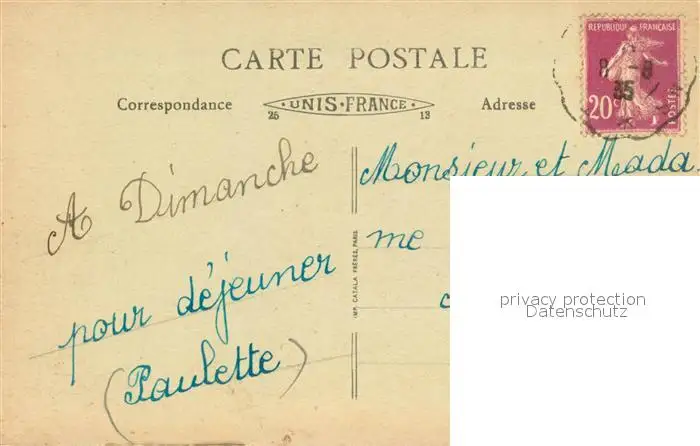 RÉPUBLIQUE FRANÇAISE
8 -8
35
20c
POSTES
CARTE POSTALE
Correspondance
UNIS-FRANCE
25 13
Adresse
A Dimanche
pour déjeuner
(Paulette)
IMP. CATALA FRÈRES, PARIS
Monsieur et Mada
me
privacy protection
Datenschutz